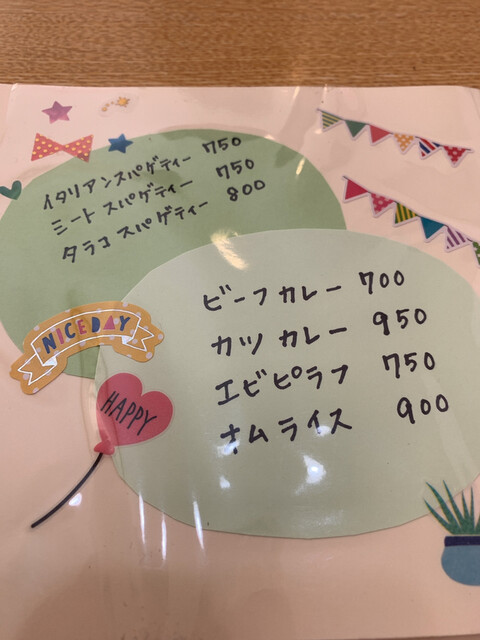 イタリアンスパゲティー 750
ミートスパゲティー 750
タラコスパゲティー 800
ビーフカレー 700
カツカレー 950
エビピラフ 750
オムライス 900
NICE DAY
HAPPY